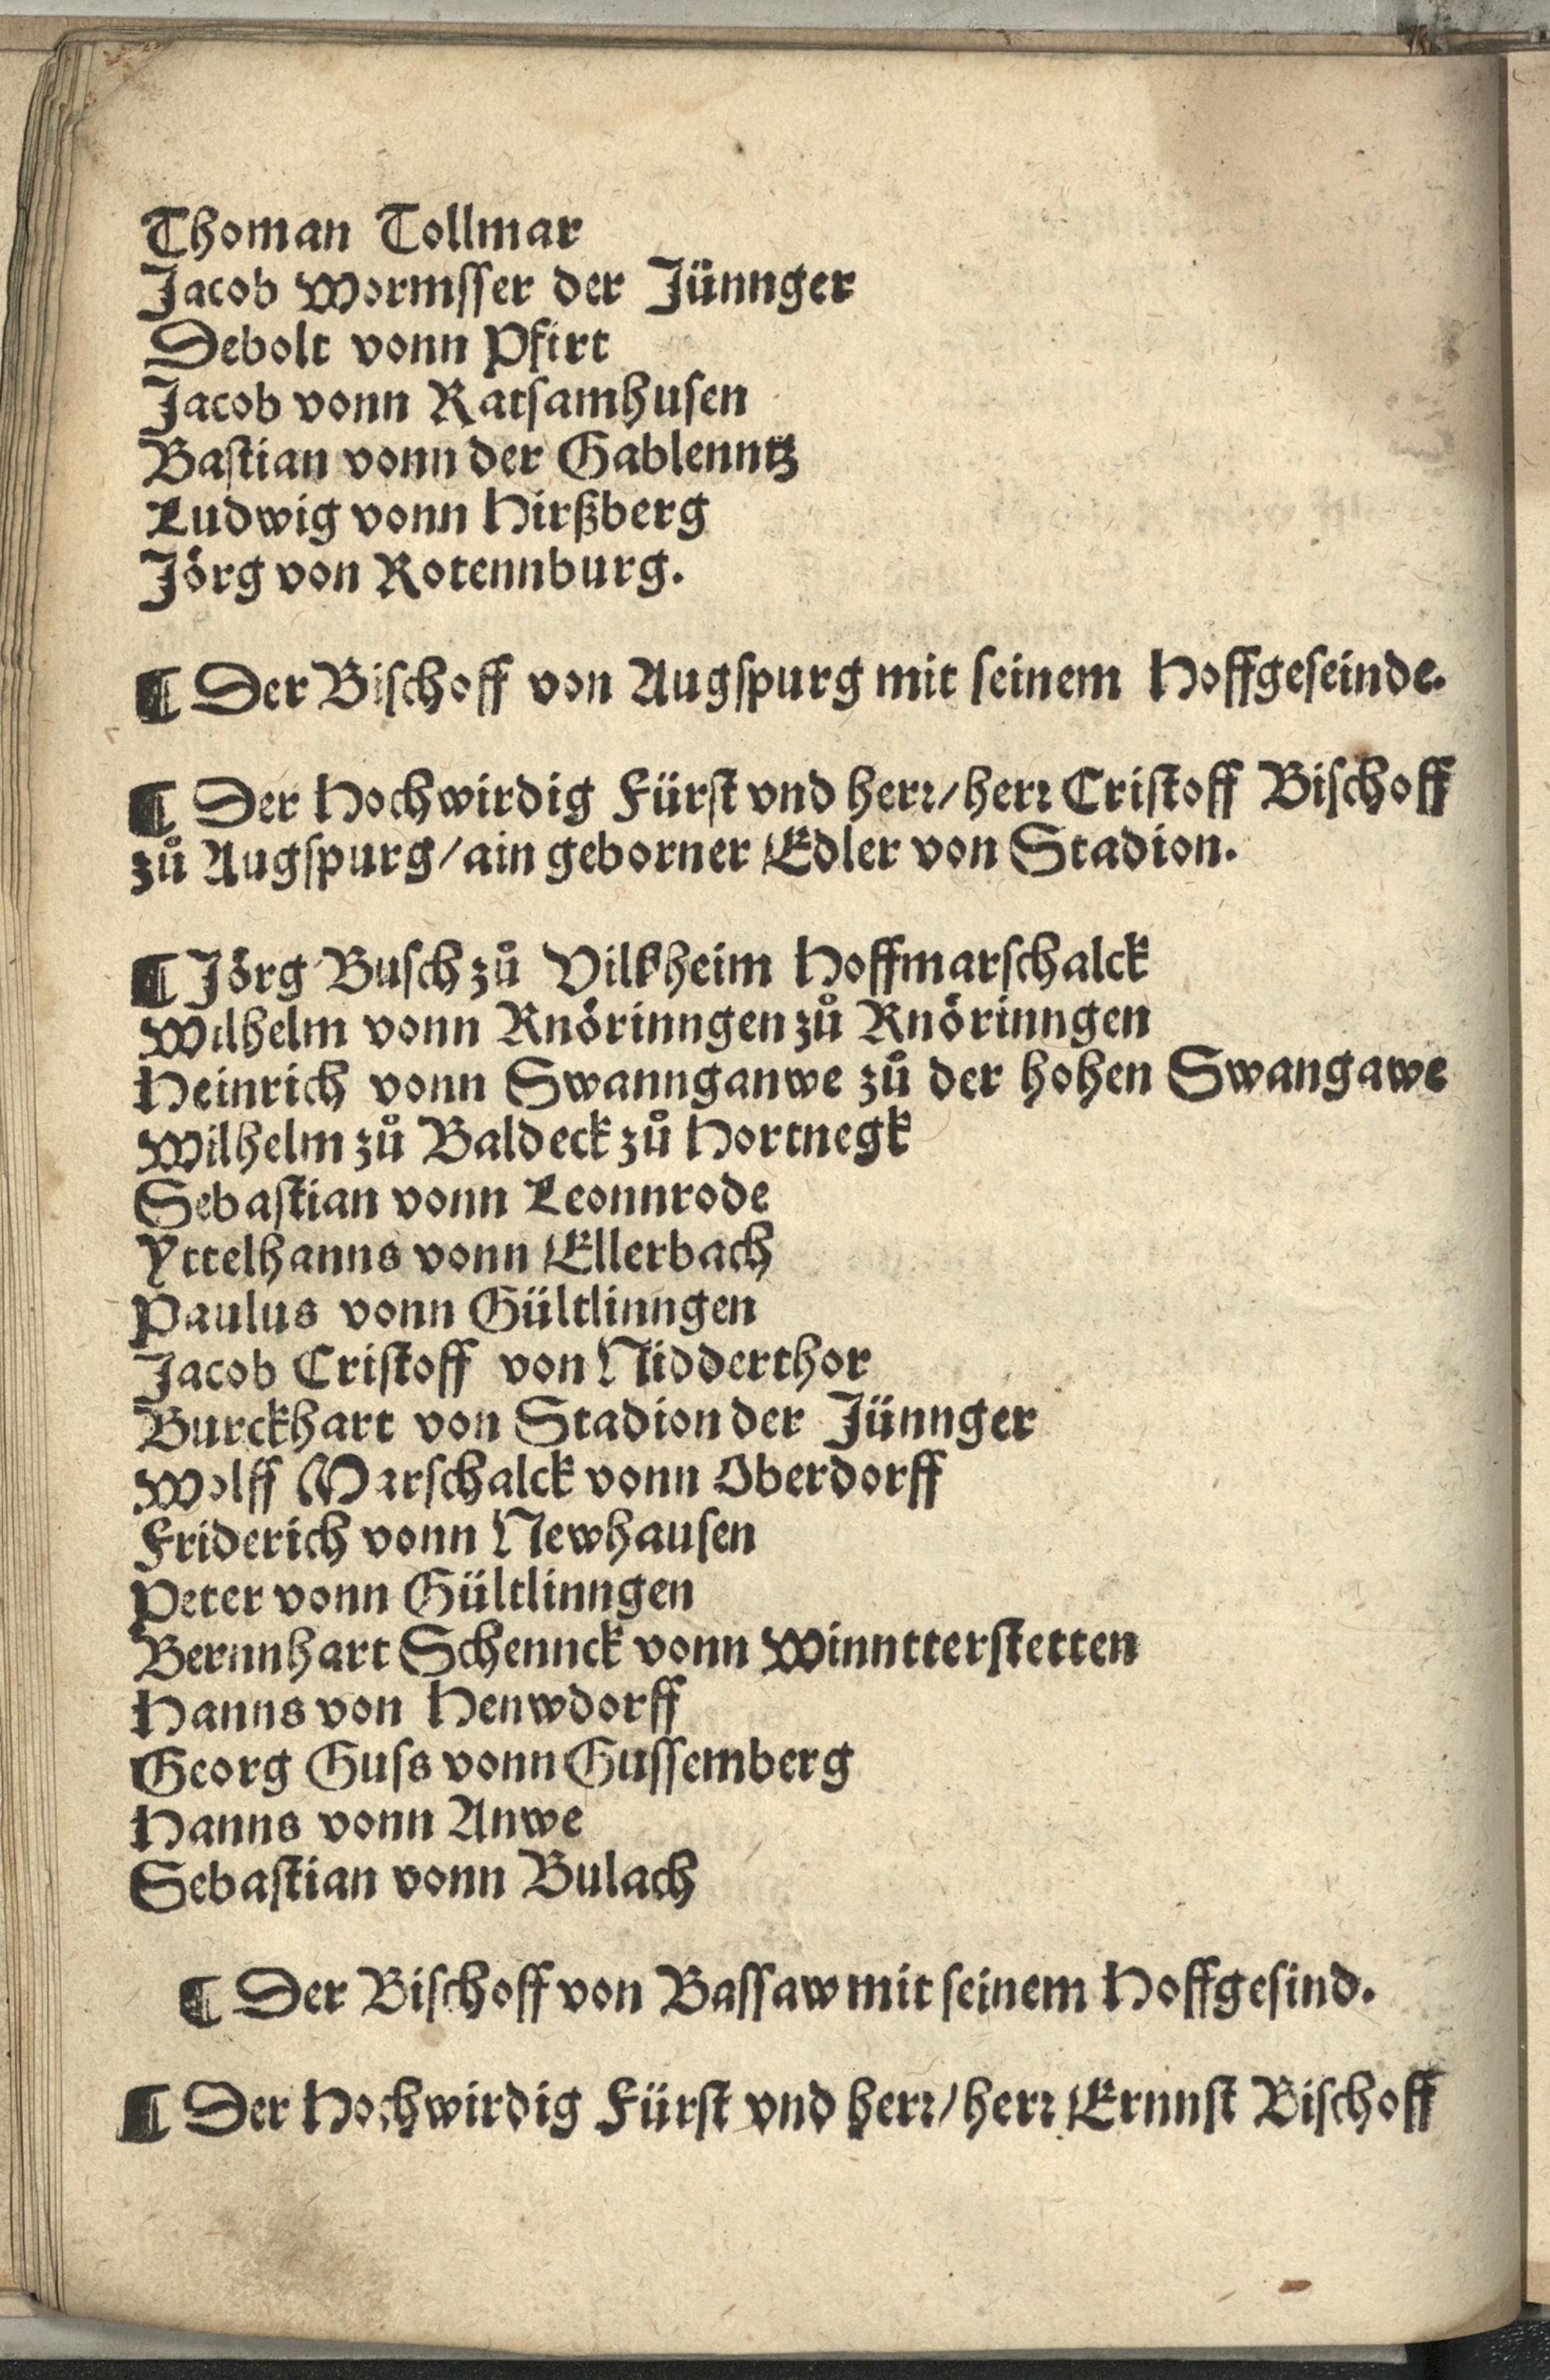 Thoman Tollmar
Jacob Wormſſer der Jünnger
Debolt vonn Pfirt
Jacob vonn Ratſamhuſen
Baſtian vonn der Gablenntz
Ludwig vonn Hirßberg
Jörg von Rotennburg.
¶ Der Biſchoff von Augſpurg mit ſeinem Hoffgeſeinde.
¶ Der Hochwirdig Fürſt vnd herꝛ/herꝛ Criſtoff Biſchoff
zů Augſpurg/ain geborner Edler von Stadion.
¶ Jörg Buſch zů Vilkheim Hoffmarſchalck
Wilhelm vonn Knörinngen zů Knörinngen
Heinrich vonn Swannganwe zů der hohen Swangawe
Wilhelm zů Baldeck zů Hortnegk
Sebaſtian vonn Leonnrode
Yttelhanns vonn Ellerbach
Paulus vonn Gültlinngen
Jacob Criſtoff von Nidderthor
Burckhart von Stadion der Jünnger
Wolff Marſchalck vonn Oberdorff
Friderich vonn Newhauſen
Peter vonn Gültlinngen
Bernnhart Schennck vonn Winntterſtetten
Hanns von Henwdorff
Georg Guſs vonn Guſſemberg
Hanns vonn Anwe
Sebaſtian vonn Bulach
¶ Der Biſchoff von Baſſaw mit ſeinem Hoffgeſind.
¶ Der Hochwirdig Fürſt vnd herꝛ/herꝛ Ernnſt Biſchoff